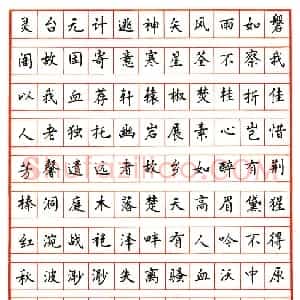 灵台无计逃神矢风雨如磐
闇故园寄意寒星荃不察我
以我血荐轩辕椒焚桂折佳
人老独托幽岩展素心岂惜
芳馨遗远者故乡如醉有荆
榛洞庭木落楚天高眉黛猩
红涴战袍泽畔有人吟不得
秋波渺渺失离骚血沃中原